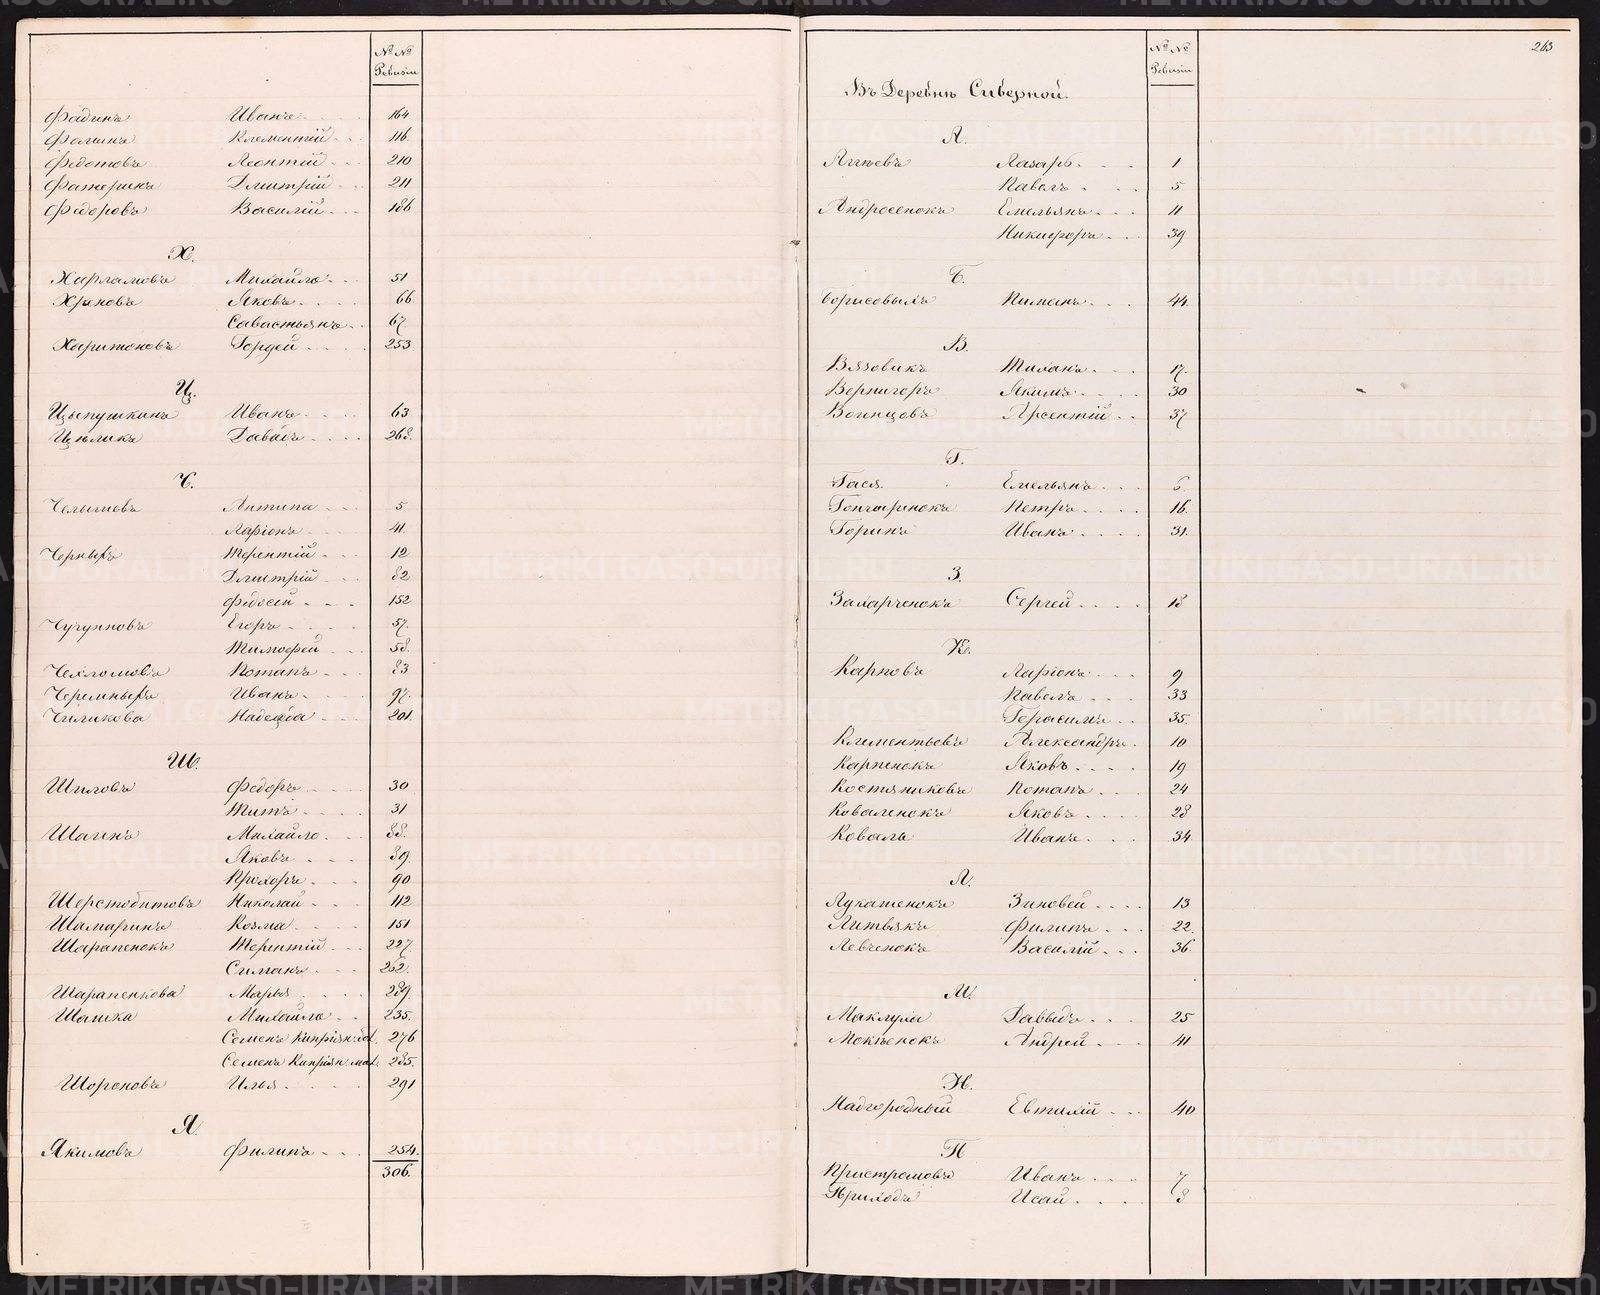 № №
Ревизіи
Фадинъ Иванъ 164
Фоминъ Клементій 116
Федотовъ Леонтій 210
Фатеринъ Дмитрій 211
Федоровъ Василій 186
Х.
Харламовъ Михайло 51
Хрѣновъ Яковъ 66
Савастьянъ 67
Харитоновъ Гордей 253
Ц.
Цыпушкинъ Иванъ 63
Цѣликъ Давыдъ 268
Ч.
Челышевъ Антипа 5
Ларіонъ 41
Черныхъ Терентій 12
Дмитрій 82
Федосей 152
Чугуновъ Егоръ 57
Тимофей 58
Чехломовъ Потапъ 83
Черемныхъ Иванъ 97
Чиликова Надежда 201
Ш.
Шиловъ Федоръ 30
Титъ 31
Шагинъ Михайло 88
Яковъ 89
Прохоръ 90
Шерстобитовъ Николай 112
Шамаринъ Козма 151
Шарапенокъ Терентій 227
Симанъ 262
Шарапенкова Марья 289
Шашка Михайло 235
Семенъ Кипріян. бол. 276
Семенъ Кипріян. мал. 285
Шороновъ Илья 291
Я.
Якимовъ Филипъ 254
306.
263
№ №
Ревизіи
Въ Деревнѣ Сиверной.
А.
Агѣевъ Лазарь 1
Павелъ 5
Андросенокъ Емельянъ 11
Никифоръ 39
Б.
Борисовыхъ Пиманъ 44
В.
Вязовикъ Миханъ 17
Вернигоръ Якимъ 30
Воинцовъ Арсентій 37
Г.
Гася Емельянъ 6
Гончаренокъ Петръ 16
Горинъ Иванъ 31
З.
Захарченокъ Сергей 18
К.
Карповъ Ларіонъ 9
Павелъ 33
Герасимъ 35
Клементьевъ Александръ 10
Карпенокъ Яковъ 19
Костяниковъ Потапъ 24
Коваленокъ Яковъ 28
Коваль Иванъ 34
Л.
Лукашенокъ Зиновей 13
Литвякъ Филипъ 22
Левченокъ Василій 36
М.
Маклуха Давыдъ 25
Мокѣенокъ Андрей 41
Н.
Надгородный Евтихій 40
П
Пристромовъ Иванъ 7
Приходъ Исай 8
METRIKI.GASO-URAL.RU